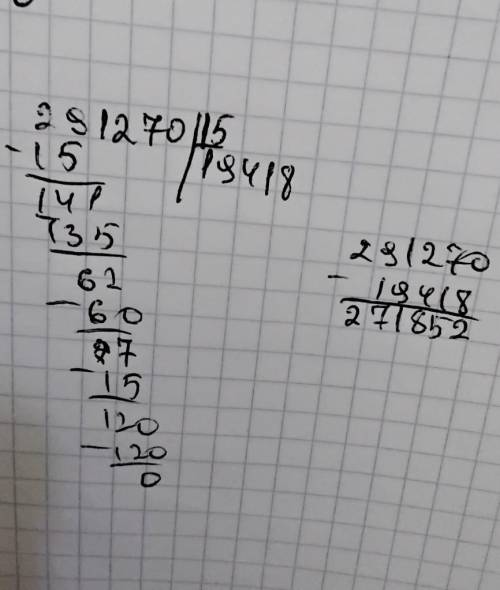 291270 15
- 15 19418
141
135
62
- 60
27
- 15
120
- 120
0
291270
- 19418
271852